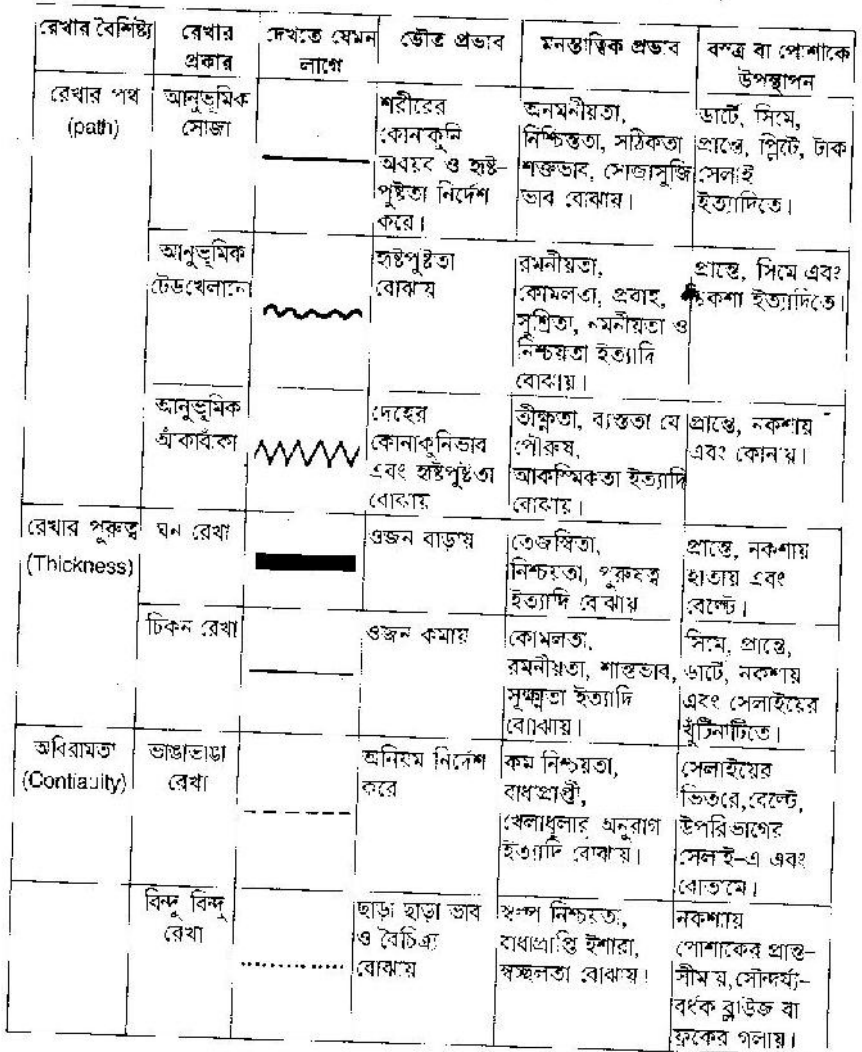 রেখার বৈশিষ্ট্য
রেখার
প্রকার
দেখতে যেমন
লাগে
ভৌত প্রভাব
মনস্তাত্বিক প্রভাব
বস্ত্র বা পোশাকে
উপস্থাপন
রেখার পথ
(path)
আনুভূমিক
সোজা
শরীরের
কোনাকুনি
অবয়ব ও হৃষ্ট-
পুষ্টতা নির্দেশ
করে।
অনমনীয়তা,
নিশ্চিন্ততা, সঠিকতা
শক্তভাব, সোজাসুজি
ভাব বোঝায়।
ডার্টে, সিমে,
প্রান্তে, প্লিটে, টাক
সেলাই
ইত্যাদিতে।
আনুভূমিক
টেডখেলানো
হৃষ্টপুষ্টতা
বোঝায়
রমনীয়তা,
কোমলতা, প্রবাহ,
সুশ্রিতা, নমনীয়তা ও
নিশ্চয়তা ইত্যাদি
বোঝায়।
প্রান্তে, সিমে এবং
নকশা ইত্যাদিতে।
আনুভূমিক
আঁকাবাঁকা
দেহের
কোনাকুনিভাব
এবং হৃষ্টপুষ্টতা
বোঝায়
তীক্ষ্ণতা, ব্যস্ততা যে
পৌরুষ,
আকস্মিকতা ইত্যাদি
বোঝায়।
প্রান্তে, নকশায়
এবং কোনায়।
রেখার পুরুত্ব
(Thickness)
ঘন রেখা
ওজন বাড়ায়
তেজস্বিতা,
নিশ্চয়তা, পুরুষত্ব
ইত্যাদি বোঝায়
প্রান্তে, নকশায়
হাতায় এবং
বেল্টে।
চিকন রেখা
ওজন কমায়
কোমলতা,
রমনীয়তা, শান্তভাব,
সূক্ষ্মতা ইত্যাদি
বোঝায়।
সিমে, প্রান্তে,
ডার্টে, নকশায়
এবং সেলাইয়ের
খুঁটিনাটিতে।
অবিরামতা
(Contiauity)
ভাঙাভাঙা
রেখা
অনিয়ম নির্দেশ
করে
কম নিশ্চয়তা,
বাধাপ্রাপ্তী,
খেলাধুলার অনুরাগ
ইত্যাদি বোঝায়।
সেলাইয়ের
ভিতরে,বেল্টে,
উপরিভাগের
সেলাই-এ এবং
বোতামে।
বিন্দু বিন্দু
রেখা
ছাড়া ছাড়া ভাব
ও বৈচিত্র্য
বোঝায়
স্বল্প নিশ্চয়তা,
বাধাপ্রাপ্তি ইশারা,
স্বচ্ছলতা বোঝায়।
নকশায়
পোশাকের প্রান্ত-
সীমায়,সৌন্দর্য্য-
বর্ধক ব্লাউজ বা
ফ্রকের গলায়।